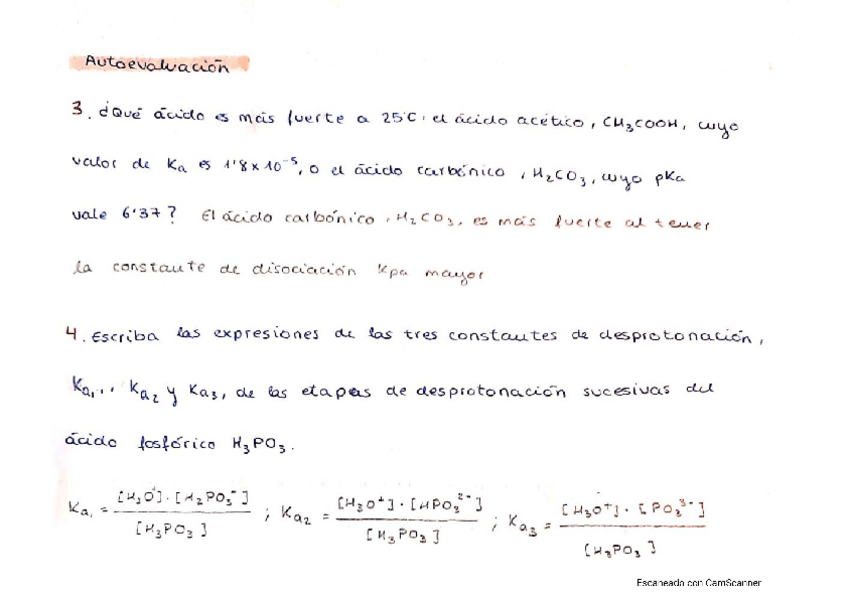 Autoevaluación
3. ¿Qué ácido es más fuerte a 25°C: el ácido acético, CH₃COOH, cuyo
valor de Ka es 1'8x10⁻⁵, o el ácido carbónico, H₂CO₃, cuyo pKa
vale 6'37? El ácido carbónico, H₂CO₃, es más fuerte al tener
la constante de disociación Kpa mayor
4. Escriba las expresiones de las tres constantes de desprotonación,
Ka₁, Ka₂ y Ka₃, de las etapas de desprotonación sucesivas del
ácido fosfórico H₃PO₃.
Ka₁ = [H₃O⁺]·[H₂PO₃⁻] / [H₃PO₃] ; Ka₂ = [H₃O⁺]·[HPO₃²⁻] / [H₃PO₃] ; Ka₃ = [H₃O⁺]·[PO₃³⁻] / [H₃PO₃]
Escaneado con CamScanner